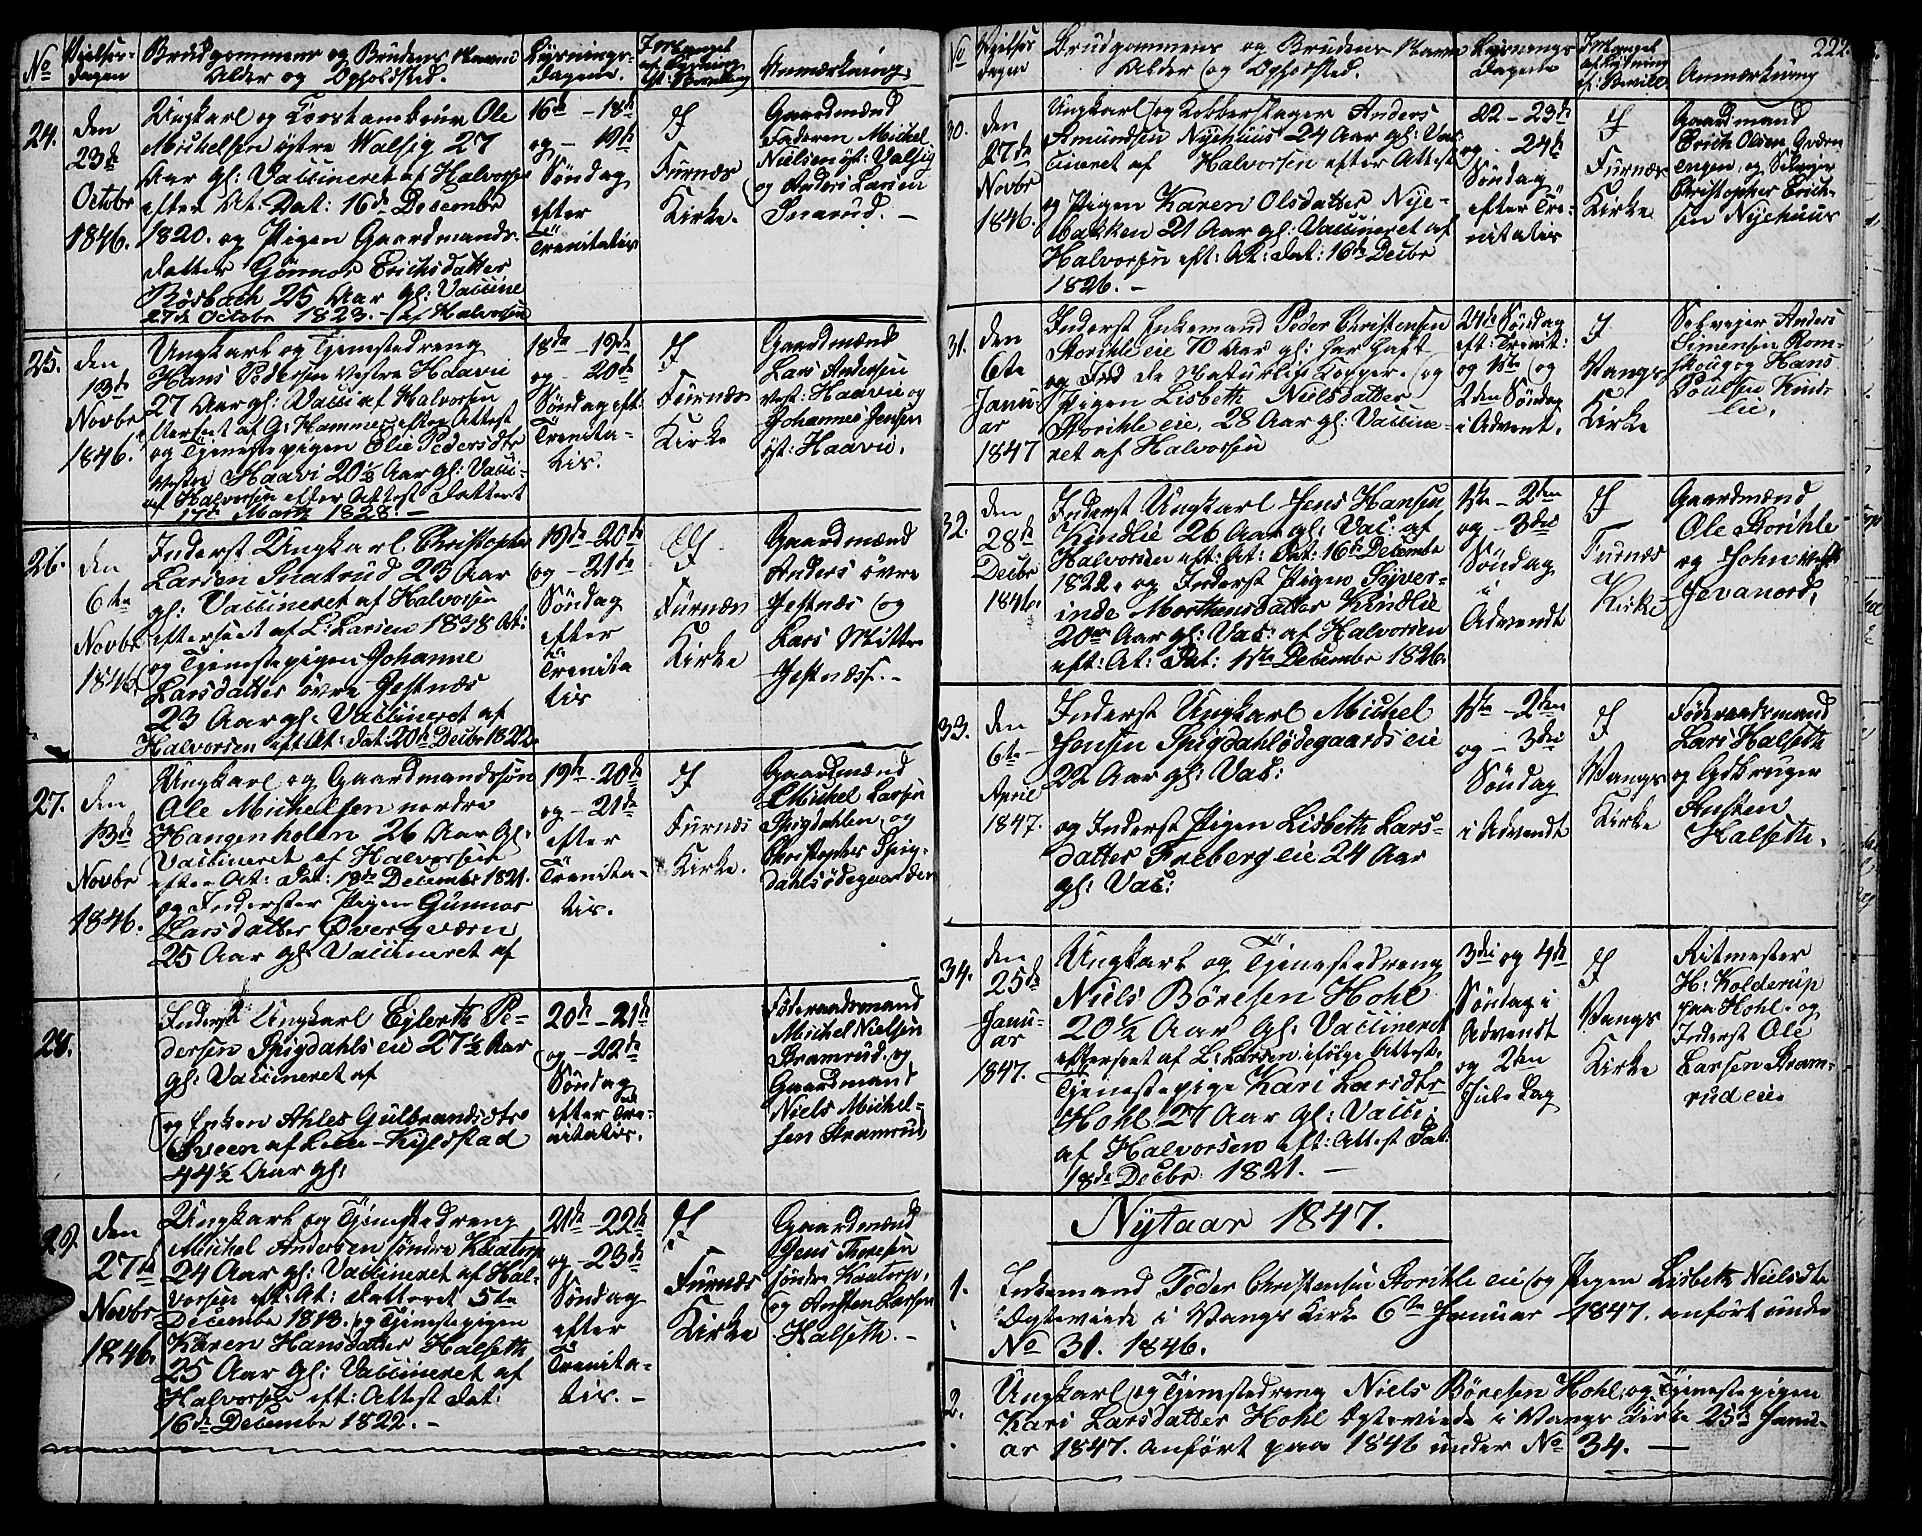 No
Vielses-
dagen
Brudgommens og Brudens Navne
Alder og Opholdsted.
Lysnings-
dagene.
I Mangel
af Lysning
Anmærkning
24.
den
23de
Octobr
1846.
Ungkarl og Ole
Michelsen östre Valsig 27
Aar gl: Vaccineret af Halvorsen
efter At: Dat: 16de Decembr
1820. og Pigen Gaardmands-
datter Gönnor Erichsdatter
Börsbach 25 Aar gl: Vaccine
27de Octobr 1823. - af Halvorsen
16de - 18de
og - 19de
Söndag
efter
Trenitatis
I
Furnæs
Kirke.
Gaardmænd
Faderen Michel
Nielsen öst: Valsig
og Anders Larsen
Snarud. -
25.
den
13de
Novbr
1846.
Ungkarl og Tjenestedreng
Hans Pedersen Vestre Haavie
27 Aar gl: Vacci af Halvorsen
efter Attest
og Tjenestepigen Elie Pedersdtr
Vestre Haavi 20½ Aar gl: Vacci-
af Halvorsen efter Attest datteret
17de Marts 1828 -
18de - 19de
og - 20de
Söndag eft:
Trenita-
tis.
I
Furnæs
Kirke
Gaardmænd
Lars Andersen
Vest: Haavie og
Johannes Jensen
öst: Haavie.
26.
den
6te
Novbr
1846
Inderst Ungkarl Christopher
Larsen Snarud 23 Aar
gl: Vaccineret af Halvorsen
efterseet af L: Larsen 1838 At:
og Tjenestepigen Johanne
Larsdatter övre Jestnæs
23 Aar gl: Vaccineret af
Halvorsen eft At: dat: 20de Decbr 1822
19de - 20de
og - 21de
Söndag
efter
Trenita
tis
I
Furnæs
Kirke
Gaardmænd
Anders övre
Jestnæs og
Lars Mittre
Jestnæss. -
27.
den
13de
Novbr
1846.
Ungkarl og Gaardmandssön
Ole Michelsen nordre
Hangenholm 26 Aar gl:
Vaccineret af Halvorsen
efter At: dat: 18de Decembr 1821.
og Inderster Pigen Gunnor
Larsdatter Overqværn
25 Aar gl: Vaccineret af
19de - 20de
og - 21de
efter
Trenita-
tis.
I
Furnæs
Kirke.
Gaardmænd
Michel Larsen
Spigdahlen og
Christopher Spig-
dahlsödegaarden
28.
Inderst Ungkarl Eylerth Pe-
dersen Spigdahls eie 27½ Aar
gl: Vaccineret af
og Enken Ahles Gulbrandsdtr
Sveen af
44½ Aar gl:
20de - 21de
og - 22de
Söndag
efter Tre-
nitatis.
Föderaadsmand
Michel Nielsen
Stramrud og
Gaardmand
Niels Michel-
sen Stramrud
29.
den
27de
Novbr
1846.
Ungkarl og Tjenestedreng
Michel Andersen söndre Kaatorp
24 Aar gl: Vaccineret af Hal-
vorsen eft: At: datteret 5te
Decembr 1818. og Tjenestepigen
Karen Hansdatter Halseth
25 Aar gl: Vaccineret af
Halvorsen eft: Attest dat:
16de Decembr 1822. -
21de - 22de
og - 23de
Söndag
efter
Trenita-
tis. -
I
Furnæs
Kirke
Gaardmænd
Jens Thoresen
söndre Kaatorp,
og Austen Larsen
Halseth. -
222.
No
Vielses
dagen
Brudgommens og Brudens Navne
Alder og Opholsted.
Lysnings
Dagene
I Mangel
af Lysning
Anmærkning
30.
den
27de
Novbr
1846.
Ungkarl og Kobberslager Anders
Amundsen Nyehuus 24 Aar gl: Vac
cineret af Halvorsen efter Attest
og Pigen Karen Olsdatter Nye-
bakken 21 Aar gl: Vaccineret af
Halvorsen eft: At: dat: 16de Decbr
1826. -
22 - 23de
og - 24de
Söndag
efter Tre-
nitatis
I
Furnæs
Kirke
Gaardmand
Erich Olsen
engen og Selveger
Christopher Erich-
sen Nyehuus
31.
den
6te
Janu-
ar
1847
Inderst Enkemand Peder Christensen
Storihle eie 70 Aar gl: har haft
og de Naturlige Kopper. og
Pigen Lisbeth Nielsdatter
Storihle eie, 28 Aar gl: Vaccine-
ret af Halvorsen
24de Söndag
eft: Trenit:
og 1ste og
2den Söndag
i Advent.
I
Vangs
Kirke
Selveier Anders
Simensen Rom-
skoug og Hans
Poulsen Kind-
lie.
32.
den
28de
Decbr
1846.
Inderst Ungkarl Jens Hansen
Kindlie 26 Aar gl: Vac: af
Halvorsen eft: At: Dat: 16de Decembr
1822. og Inderst Pigen Syver-
inde Morthensdatter Kindlie
20 Aar gl: Vac: af Halvorsen
eft: At: Dat: 1ste Decembr 1826.
1ste - 2den
og - 3die
Söndag
i
Advendt
I
Furnæs
Kirke
Gaardmænd
Ole Storihle
og John Vestre
Jevanord.
33.
den
6te -
April
1847.
Inderst Ungkarl Michel
Jensen Spigdahlödegaards eie
22 Aar gl: Vac:
og Inderst Pigen Lisbeth Lars-
datter Freberg eie 24 Aar
gl: Vac:
1ste - 2den
og - 3die
Söndag
i Advendt
I
Vangs
Kirke
Föderaadsmand
Lars Halseth
og Gdbruger
Austen
Halseth.
34.
den
25de
Janu-
ar
1847.
Ungkarl og Tjenestedreng
Niels Böresen Hohl
20½ Aar gl: Vaccineret
efterseet af L: Larsen ifölge Attest.
Tjenestepige Kari Larsdtr
Hohl 27 Aar gl: Vacci:
af Halvorsen eft: Attest Dat:
18de Decbr 1821. -
3die og 4de
Söndag i
Advendt
og 2den
Jule Dag
I
Vangs
Kirke
Ritmester
H: Kolderup
paa Hohl. og
Inderst Ole
Larsen Stram-
rud eie
Nytaar 1847.
1.
Enkemand Peder Christensen Storihle eie og Pigen Lisbeth Nielsdtr
Egteviede i Vangs Kirke 6te Januar 1847. anfört under
No 31. 1846.
2.
Ungkarl og Tjenestedreng Niels Böresen Hohl og Tjenestepigen
Kari Larsdatter Hohl Egteviede i Vangs Kirke 25de Janu-
ar 1847. anfört paa 1846 under No 34. -